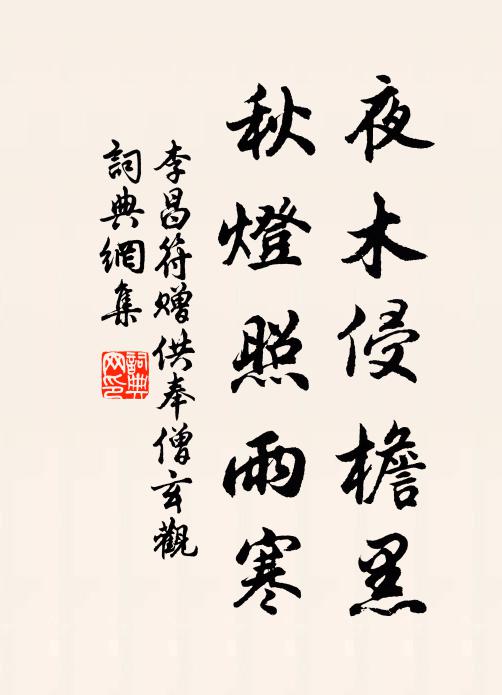 夜木侵檐黑
秋燈照雨寒
李昌符赠供奉僧玄觀
詞典網集
詞典網印